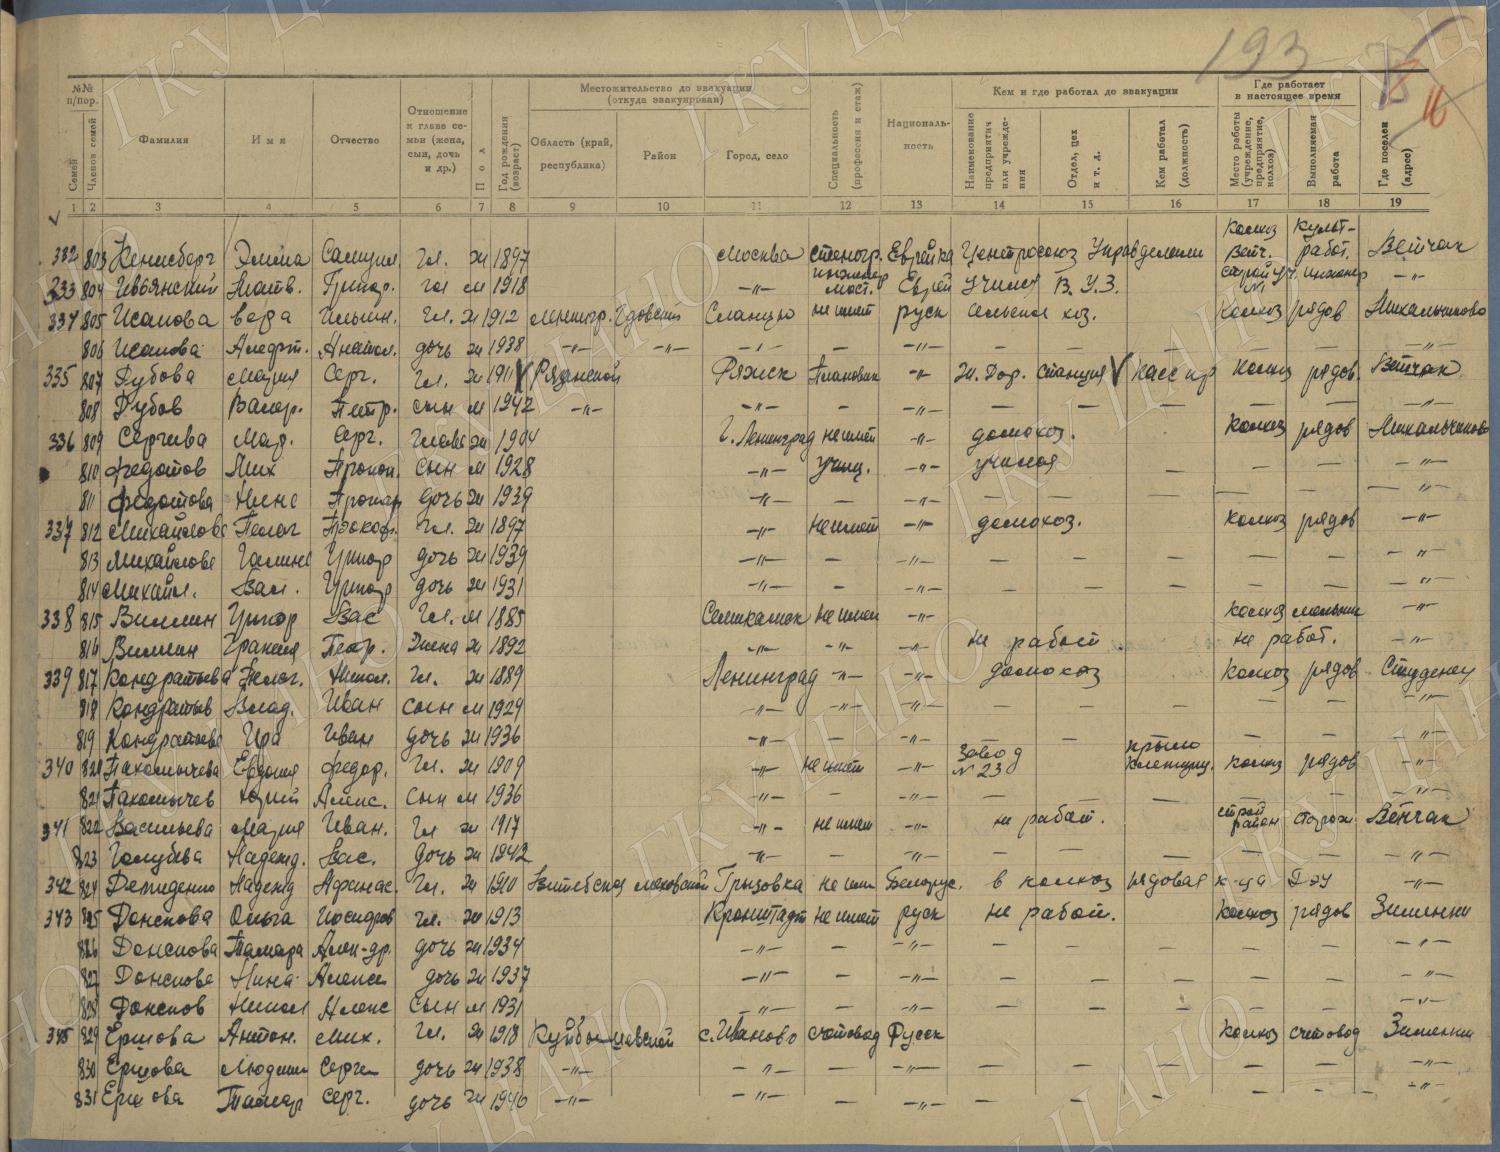 193
16
№№ п/пор.
Семей
Членов семей
Фамилия
Имя
Отчество
Отношение к главе семьи (жена, сын, дочь и др.)
Пол
Год рождения (возраст)
Местожительство до эвакуации (откуда эвакуирован)
Область (край, республика)
Район
Город, село
Специальность (профессия и стаж)
Националь-ность
Кем и где работал до эвакуации
Наименование предприятия или учреждения
Отдел, цех и т. д.
Кем работал (должность)
Где работает в настоящее время
Место работы (учреждение, предприятие, колхоз)
Выполняемая работа
Где поселен (адрес)
1 2 3 4 5 6 7 8 9 10 11 12 13 14 15 16 17 18 19
332 803 Кенигсберг Эмма Самуил. Гл. ж 1897 Москва стеногр. Еврейка Центросоюз Управделами колхоз Ветч. культ-работ. Ветчак
333 804 Матв. Григор. гл м 1918 -"- инженер мост. Еврей Учился В.У.З. строй уч. №1 инженер -"-
334 805 Исакова вера Ильин. Гл. ж 1912 Ленингр. Гдовский Сланцы не имеет русск сельское хоз. Колхоз рядов Михальчиково
806 Исакова Анат. дочь ж 1938 -"- -"- -"- — -"- — — — — — -"-
335 807 Дубова Мария Серг. Гл. ж 1911 Рязанской Ряжск Плановик -"- Ж. Дор. станция кассир колхоз рядов. Ветчак
808 Дубов Валер. Петр. сын м 1942 -"- -"- — -"- — — — — — -"-
336 809 Сергеева Мар. Серг. Глава ж 1904 г. Ленинград не имеет -"- домохоз. колхоз рядов Михальчиково
810 Федотов Мих Прокоп. сын м 1928 -"- учащ. -"- учился — — — -"-
811 Федотова Нина дочь ж 1939 -"- — -"- — — — — -"-
337 812 Михайлова Пелаг Прокоф. Гл. ж 1897 -"- не имеет -"- домохоз. колхоз рядов -"-
813 Михайлова Галина Григор дочь ж 1939 -"- — -"- — — — — — -"-
814 Михайл. Вал. Григор дочь ж 1931 -"- — -"- — — — — — -"-
338 815 Григор Вас Гл. м 1885 не имеет -"- колхоз -"-
816 Петр. Жена ж 1892 -"- -"- -"- не работ. не работ. -"-
339 817 Кондратьева Пелаг. Никол. Гл. ж 1889 Ленинград -"- -"- домохоз колхоз рядов Студенец
818 Кондратьев Влад. Иван сын м 1929 -"- -"- -"- — — — — — -"-
819 Кондратьева Ира Иван дочь ж 1936 -"- — -"- — — — — -"-
340 820 Пахомычева Евдокия Федор. Гл. ж 1909 -"- не имеет -"- Завод № 23 колхоз рядов -"-
821 Пахомычев Юрий Алекс. сын м 1936 -"- — -"- — — — — — -"-
341 822 Васильева Мария Иван. Гл ж 1917 -"- не имеет -"- не работ. строй район сторож Ветчак
823 Голубева Надежд. Вас. дочь ж 1942 -"- — -"- — — — — — -"-
342 824 Демиденко Надежд Афанас. Гл. ж 1910 Витебская Грызовка не им Белорус. в колхоз рядовая -"-
343 825 Донскова Ольга гл. ж 1913 Кронштадт не имеет русск не работ. колхоз рядов Зименки
826 Донскова Тамара Алек-др. дочь ж 1934 -"- — -"- — — — — — -"-
827 Донскова Нина Алекса дочь ж 1937 -"- — -"- — — — — — -"-
828 Донсков Никол Алекс сын м 1931 -"- — -"- — — — — — -"-
345 829 Ершова Антон. Мих. Гл. ж 1918 Куйбышевской с. Иваново счетовод Русск колхоз счетовод Зименки
830 Ершова Людмил Серге дочь ж 1938 -"- -"- — -"- — — — — — -"-
831 Ершова Тамар Серг. дочь ж 1940 -"- -"- — -"- — — — — — -"-
ГКУ ЦАНО